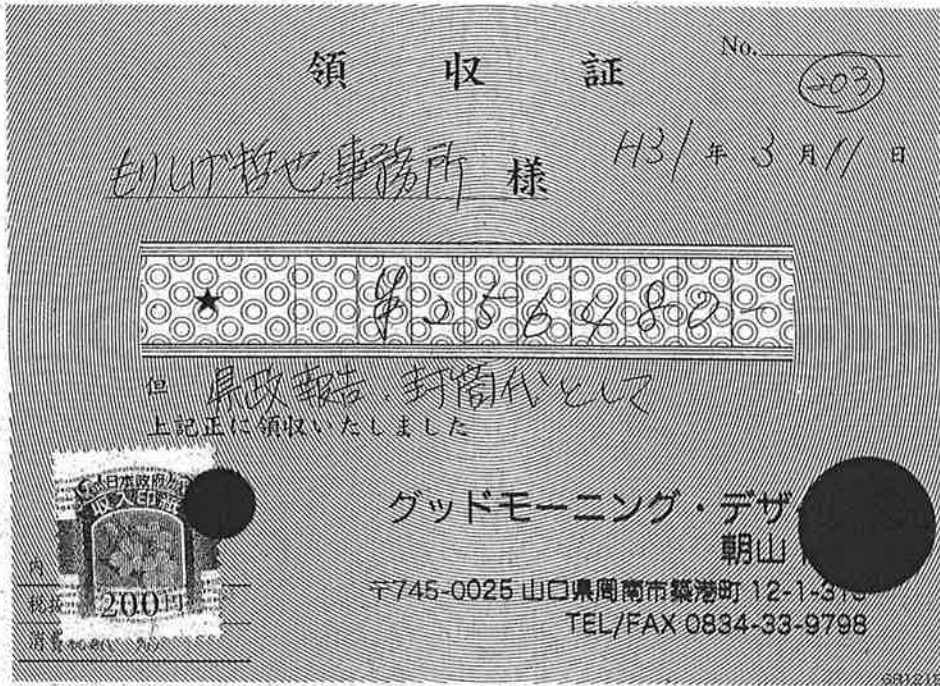 No.
領収証
203
もりしげ哲也事務所 様
H31年3月11日
★ ¥256480-
但 県政報告・封筒代として
上記正に領収いたしました
日本政府
収入印紙
200円
グッドモーニング・デザ
朝山
〒745-0025 山口県周南市築港町 12-1-313
TEL/FAX 0834-33-9798
内
税抜